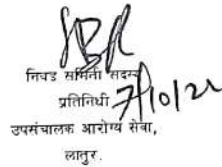 निवड समिती सदस्य
प्रतिनिधी 7/10/22
उपसंचालक आरोग्य सेवा,
लातुर.